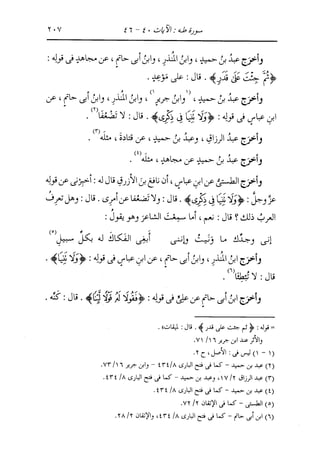 سورة طه : الآيات ٤٠ - ٤٦ ٢٠٧
وأخرج عبدُ بنُ حميدٍ ، وابنُ المنذرِ ، وابنُ أبى حاتمٍ ، عن مجاهدٍ فى قولِه :
﴿ثُمَّ جِئْتَ عَلَى قَدَرٍ﴾ . قال : على مَوْعِدٍ .
وأخرَج عبدُ بنُ حميدٍ ، (١وابنُ جريرٍ١) ، وابنُ المنذرِ ، وابنُ أبى حاتمٍ ، عن
ابنِ عباسٍ فى قولِه : ﴿وَلَا نَنِيَا فِى ذِكْرِى﴾ . قال : لا تَضْعُفَا(٢) .
وأخرَج عبدُ الرزاقِ ، وعبدُ بنُ حميدٍ ، عن قتادةَ ، مثلَه(٣) .
وأخرَج عبدُ بنُ حميدٍ عن مجاهدٍ ، مثلَه(٤) .
وأخرَج الطستىُّ عن ابنِ عباسٍ ، أن نافعَ بنَ الأزرقِ قال له : أخبِرْنى عن قولِه
عزَّ وجلَّ : ﴿وَلَا نَنِيَا فِى ذِكْرِى﴾ . قال : ولا تَضْعُفا عن أمرِى . قال : وهل تعرِفُ
العربُ ذلك ؟ قال : نعم ، أما سمِعْتَ الشاعرَ وهو يقولُ :
إنى وجدِّك ما وَنَيتُ وإننى أبغى الفكاكَ له بكلِّ سبيلِ(٥)
وأخرَج ابنُ المنذرِ ، وابنُ أبى حاتمٍ ، عن ابنِ عباسٍ فى قولِه : ﴿وَلَا نَنِيَا﴾ .
قال : لا تُبْطِئا(٦) .
وأخرَج ابنُ أبى حاتمٍ عن علىٍّ فى قولِه : ﴿فَقُولَا لَهُ قَوْلًا لَّيِّنًا﴾ . قال : كَنِّه .
= قوله : ﴿ثم جئت على قدر﴾ . قال : لميقات» .
والأثر عند ابن جرير ١٦/ ٧١.
(١ - ١) ليس فى : الأصل ، ح ٢.
(٢) عبد بن حميد - كما فى فتح البارى ٨/ ٤٣٤ - وابن جرير ١٦/ ٧٣.
(٣) عبد الرزاق ٢/ ١٧، وعبد بن حميد - كما فى فتح البارى ٨/ ٤٣٤.
(٤) عبد بن حميد - كما فى فتح البارى ٨/ ٤٣٤.
(٥) الطستى - كما فى الإتقان ٢/ ٧٢.
(٦) ابن أبى حاتم - كما فى فتح البارى ٨/ ٤٣٤، والإتقان ٢/ ٢٨.